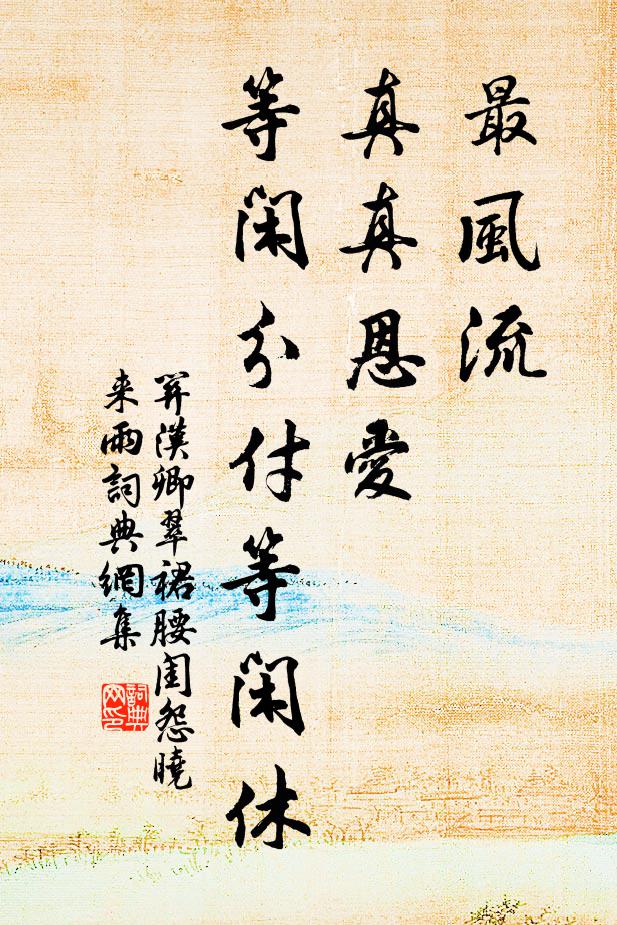 最風流
真真恩愛
等閑分付等閑休
關漢卿翠裙腰閨怨曉
来雨詞典網集
詞典
网印